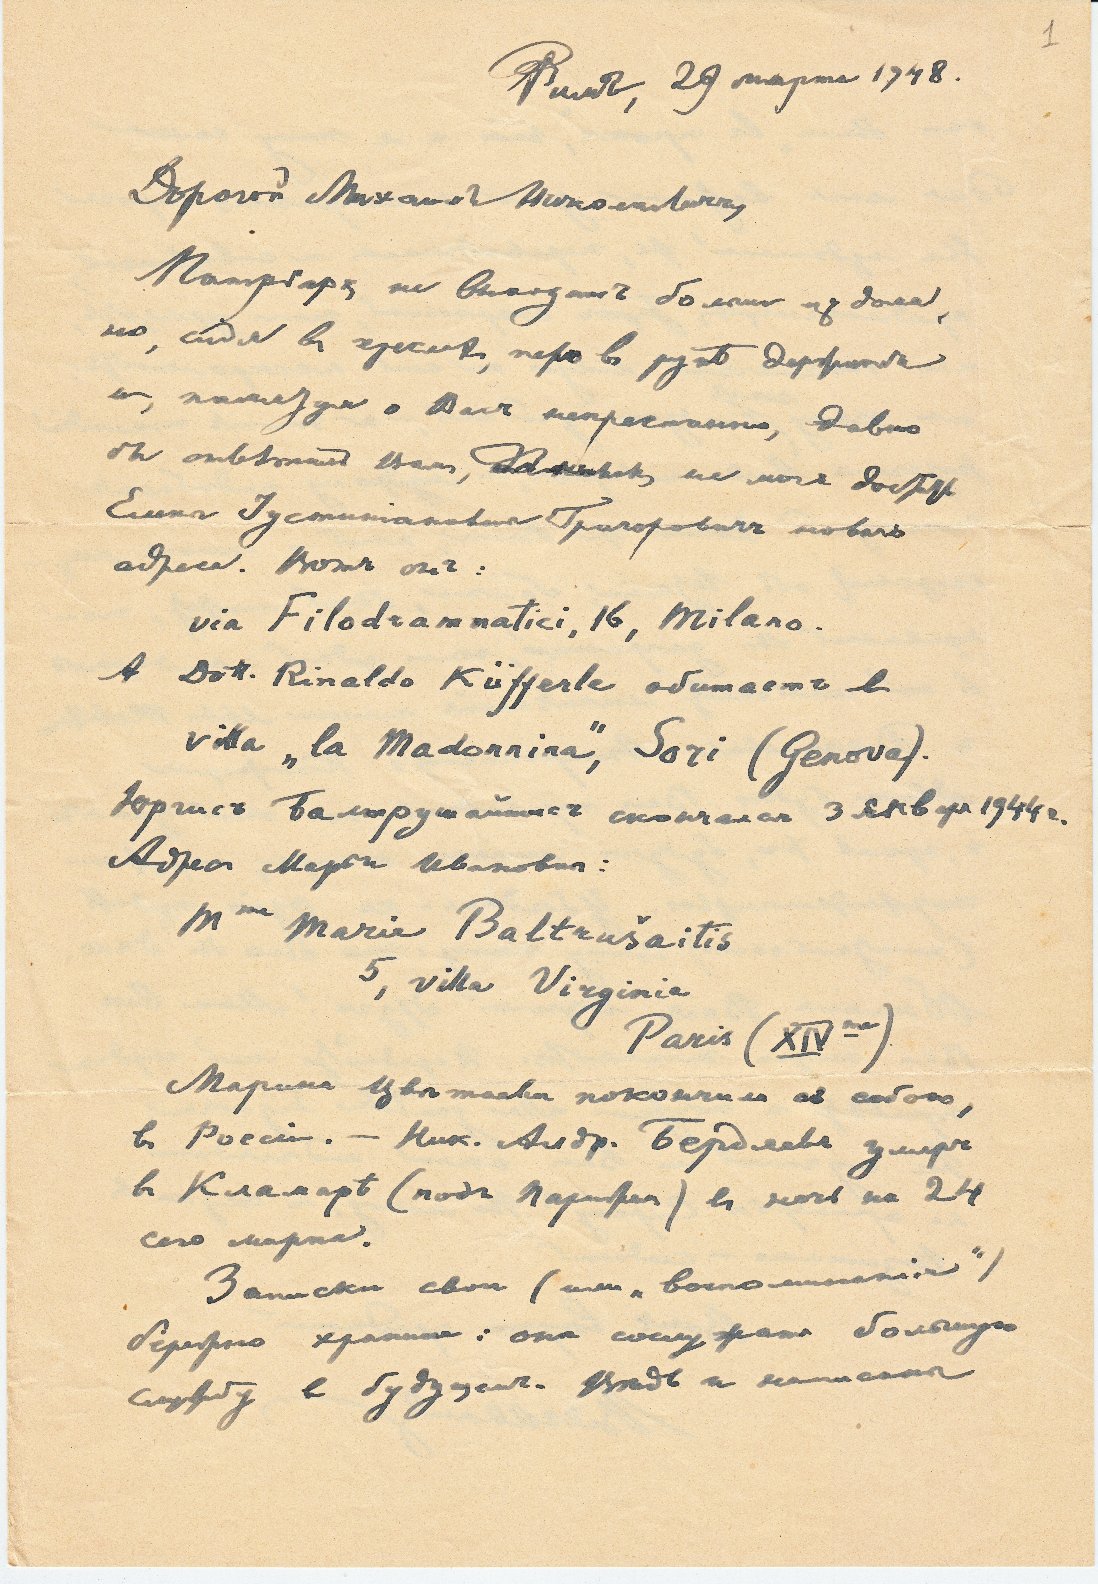 1
Римъ, 29 марта 1948.
Дорогой Михаилъ Николаевичъ,
Патріархъ не выходитъ больше изъ дома,
но, сидя въ креслѣ, перо въ рукѣ держитъ
и, памятуя о Васъ непрестанно, давно
бы отвѣтилъ Вамъ, не могъ
Елены Іустиніановны Григоровичъ новаго
адреса. Вотъ онъ:
via Filodrammatici, 16, Milano.
А Dott. Rinaldo Küfferle обитаетъ въ
villa „la Madonnina“, Sori (Genova).
Юргисъ Балтрушайтисъ скончался 3 января 1944 г.
Адресъ Маріи Ивановны:
Mme Marie Baltrušaitis
5, villa Virginie
Paris (XIVme)
Марина Цвѣтаева покончила съ собою,
въ Россіи. — Ник. Алдр. Бердяевъ умеръ
въ Кламарѣ (подъ Парижемъ) въ ночь на 24
сего марта.
Записки свои (или „воспоминанія“)
бережно храните: онѣ сослужатъ большую
службу въ будущемъ. Вѣдь и написаны